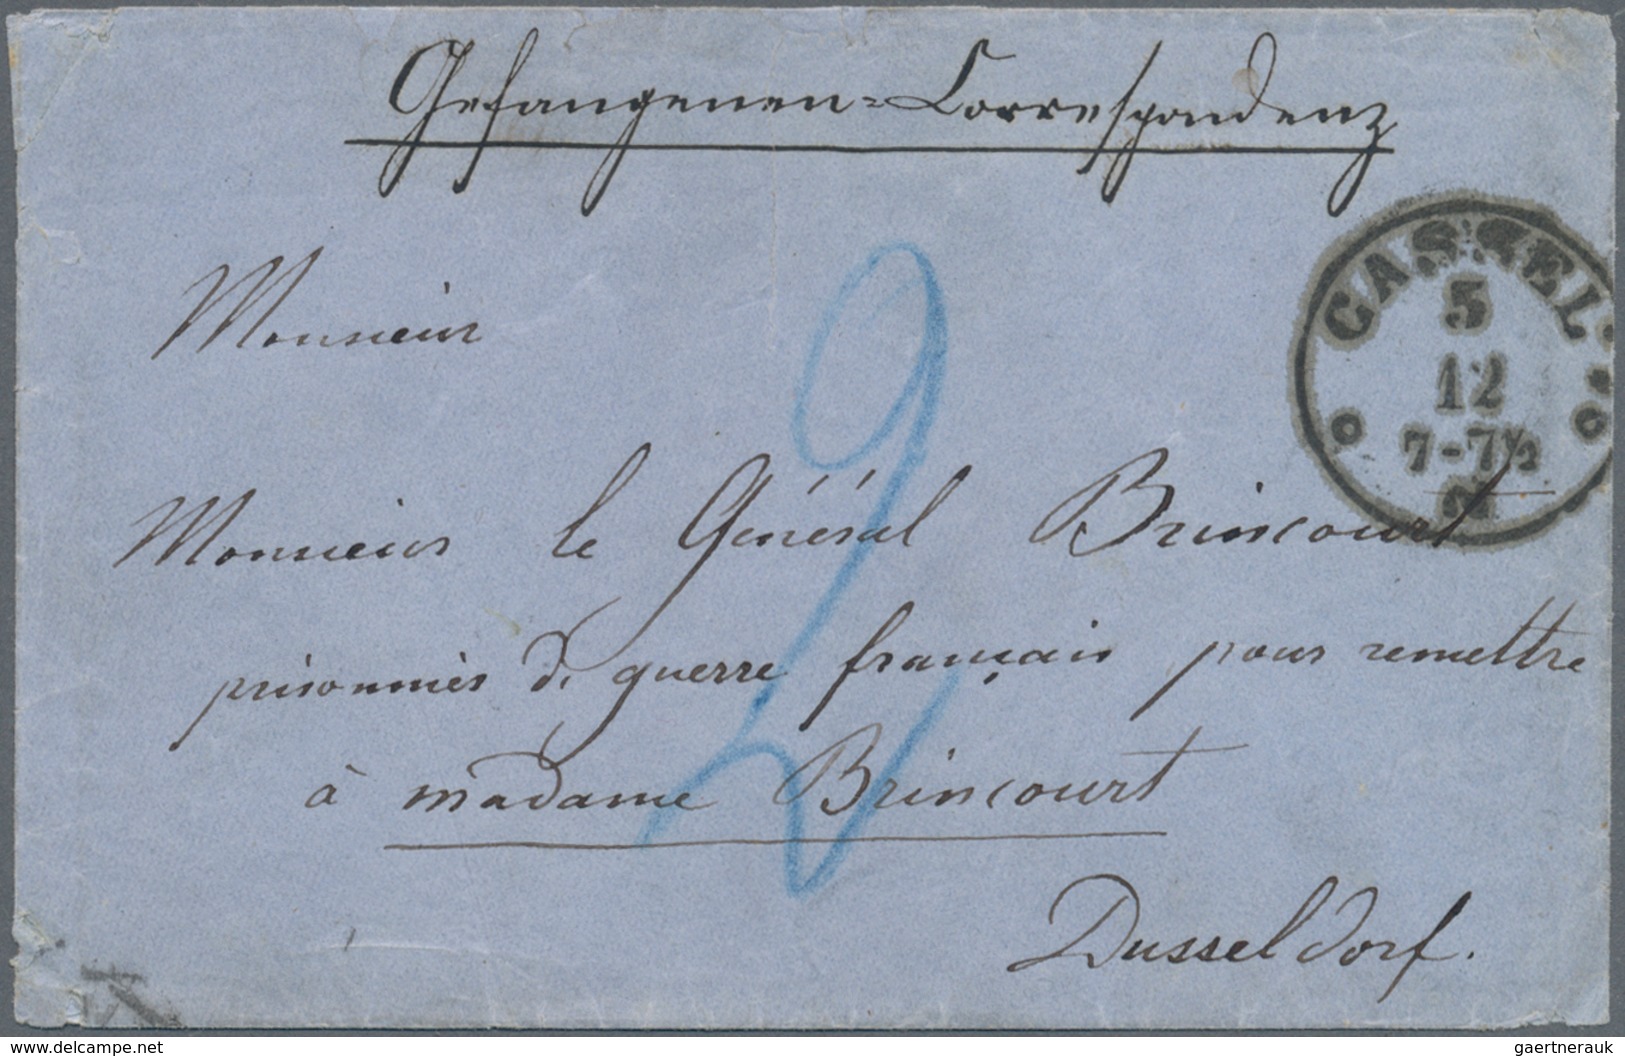 Gefangenen-Correspondenz
CASSEL
5
12
7-7½
N
Monsieur
Monsieur le Général Brincourt
prisonnier de guerre français pour remettre
à madame Brincourt
Dusseldorf.
2
www.delcampe.net
gaertnerauk